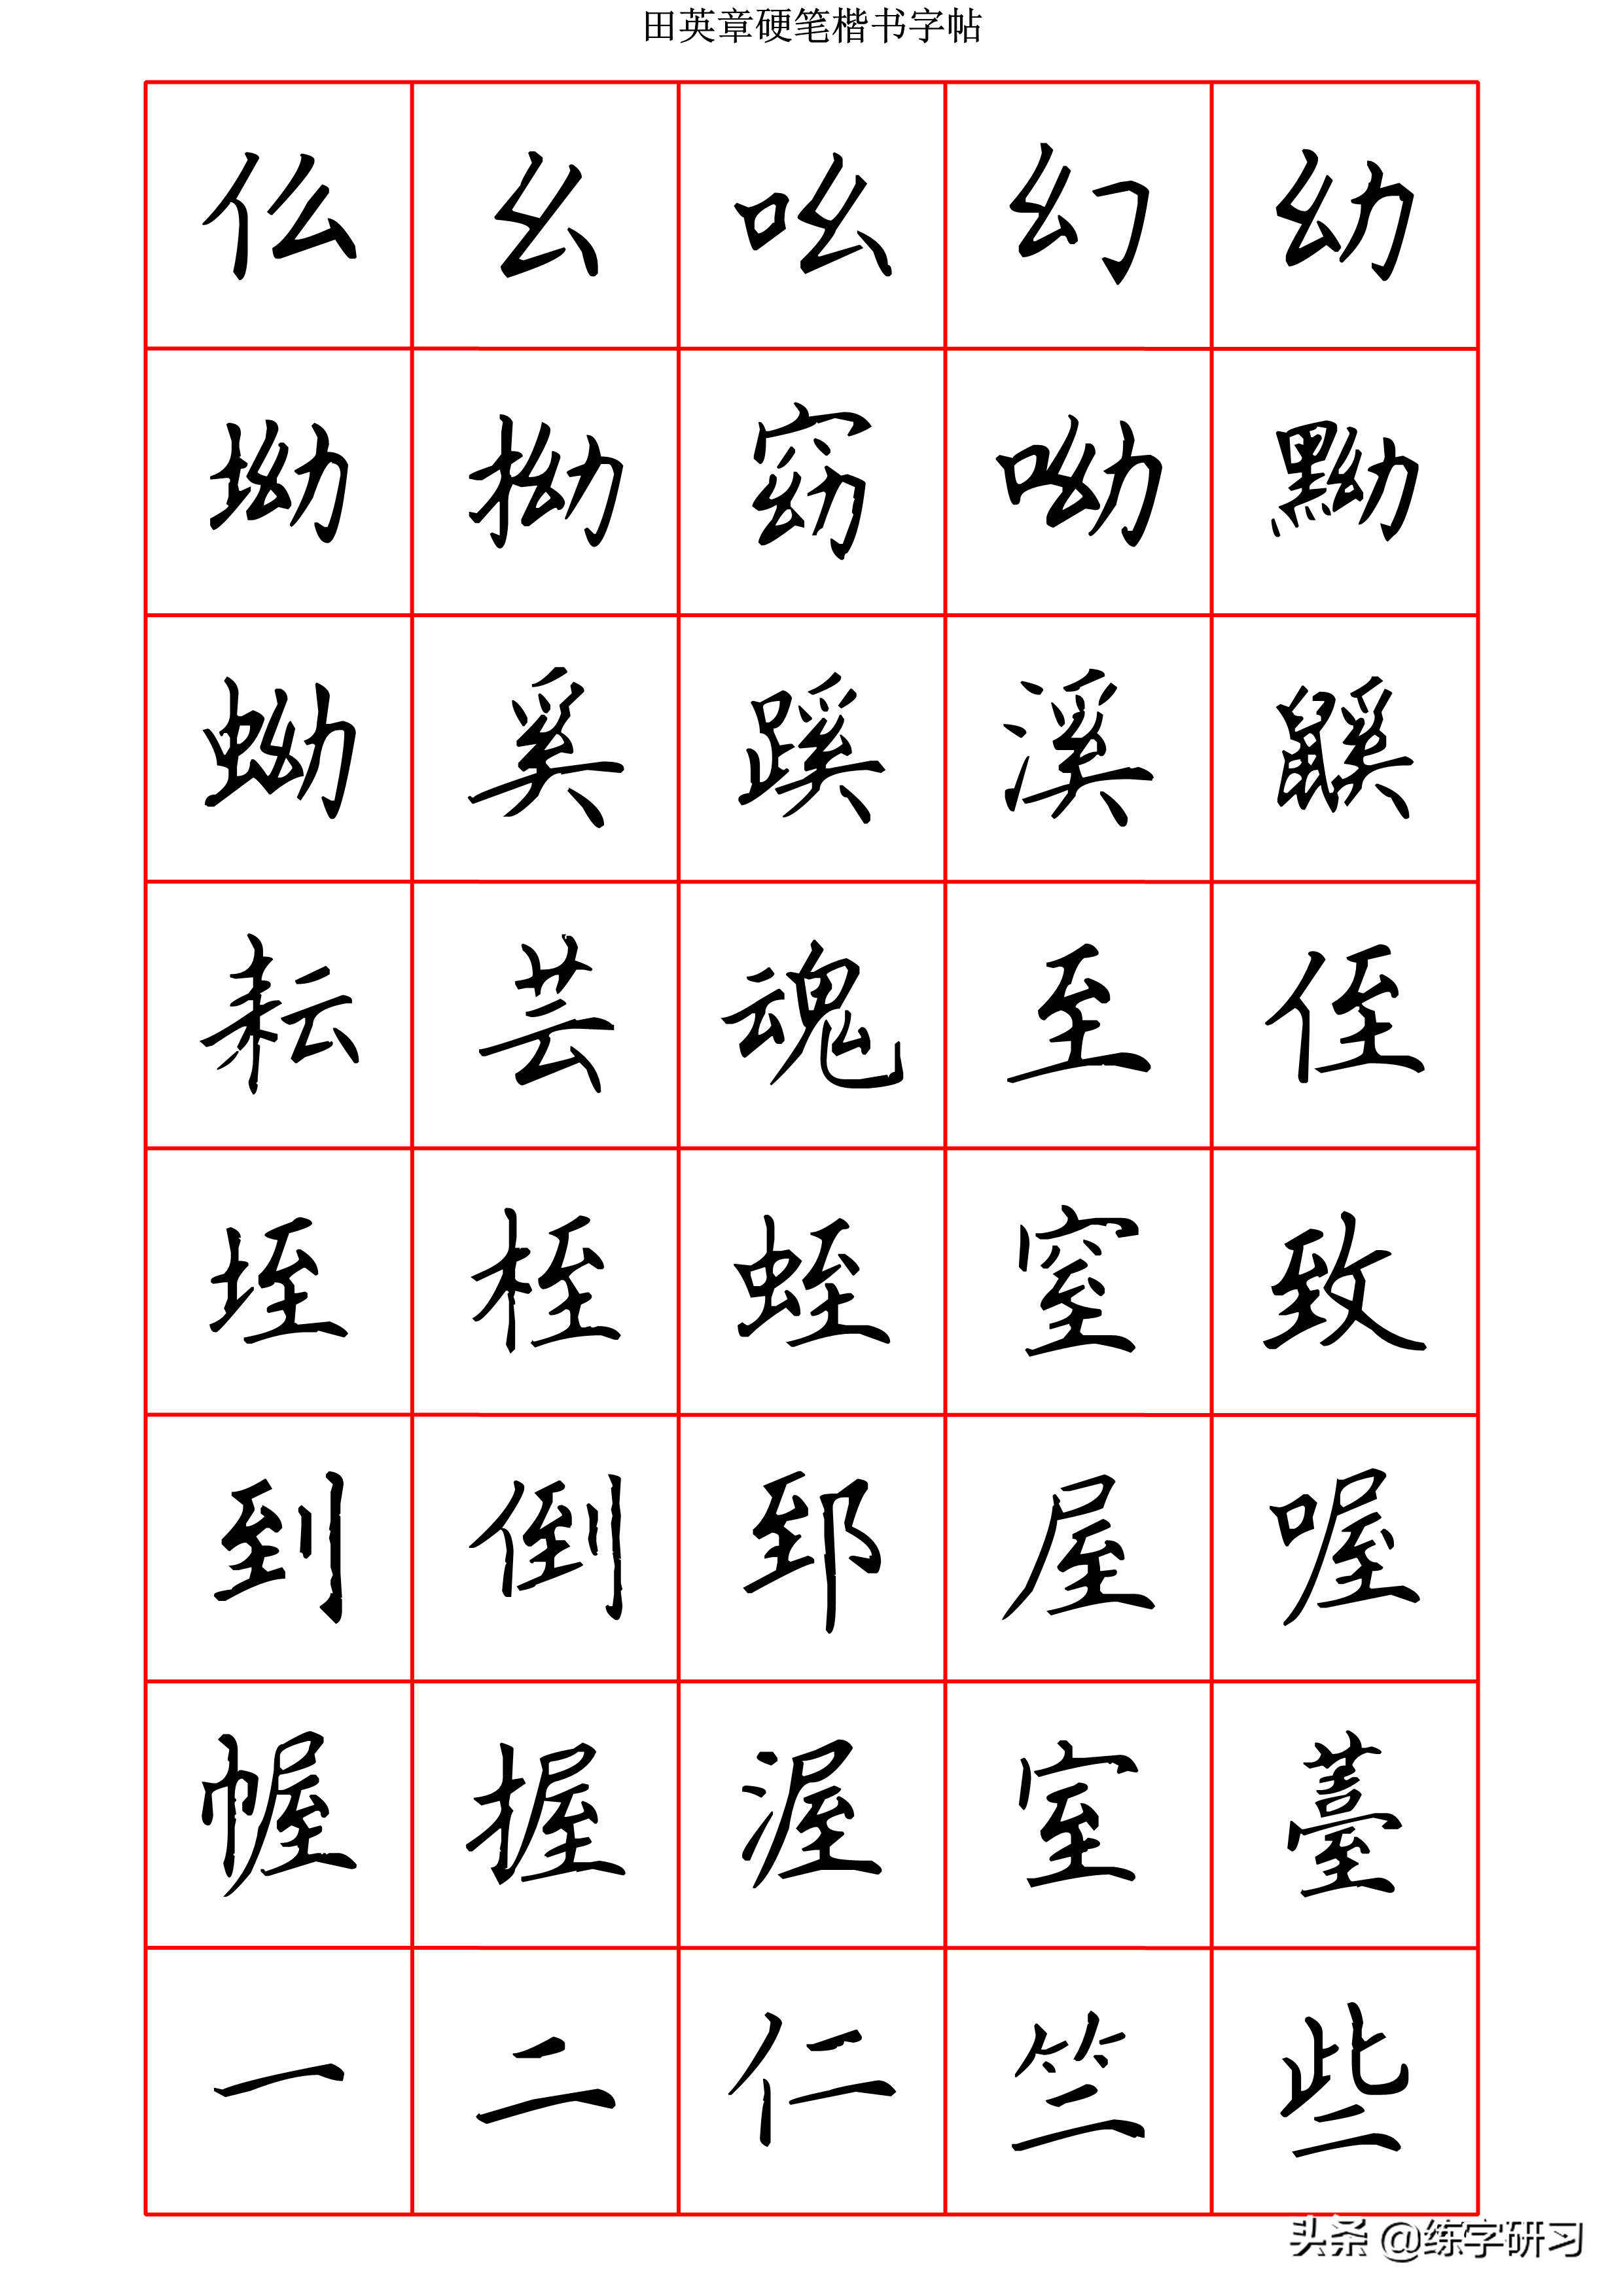 田英章硬笔楷书字帖
仫 幺 吆 幻 幼
坳 拗 窈 呦 黝
蚴 奚 蹊 溪 鼷
耘 芸 魂 至 侄
垤 桎 蛭 窒 致
到 倒 郅 屋 喔
幄 握 渥 室 薹
一 二 仁 竺 些
头条 @练字研习